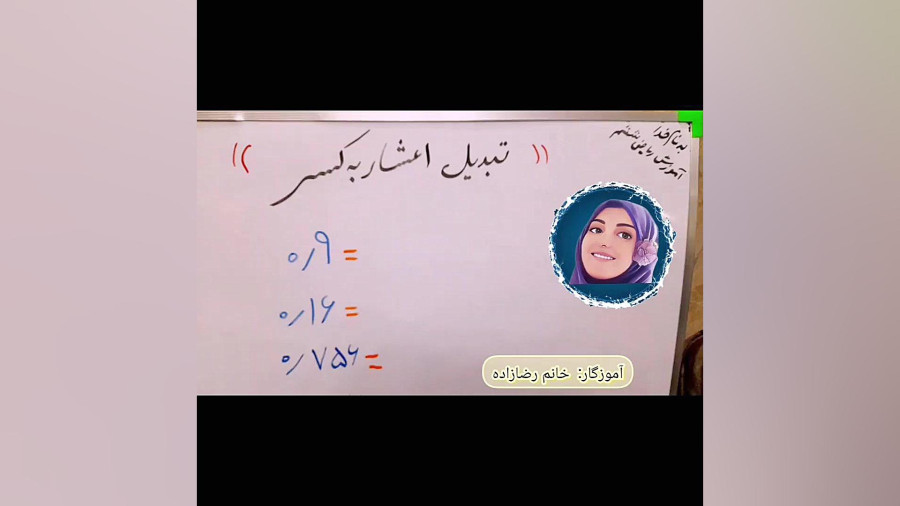 به نام خدا
آموزش ریاضی ششم
(( تبدیل اعشار به کسر ))
۰/۹ =
۰/۱۶ =
۰/۷۵۶ =
آموزگار: خانم رضازاده